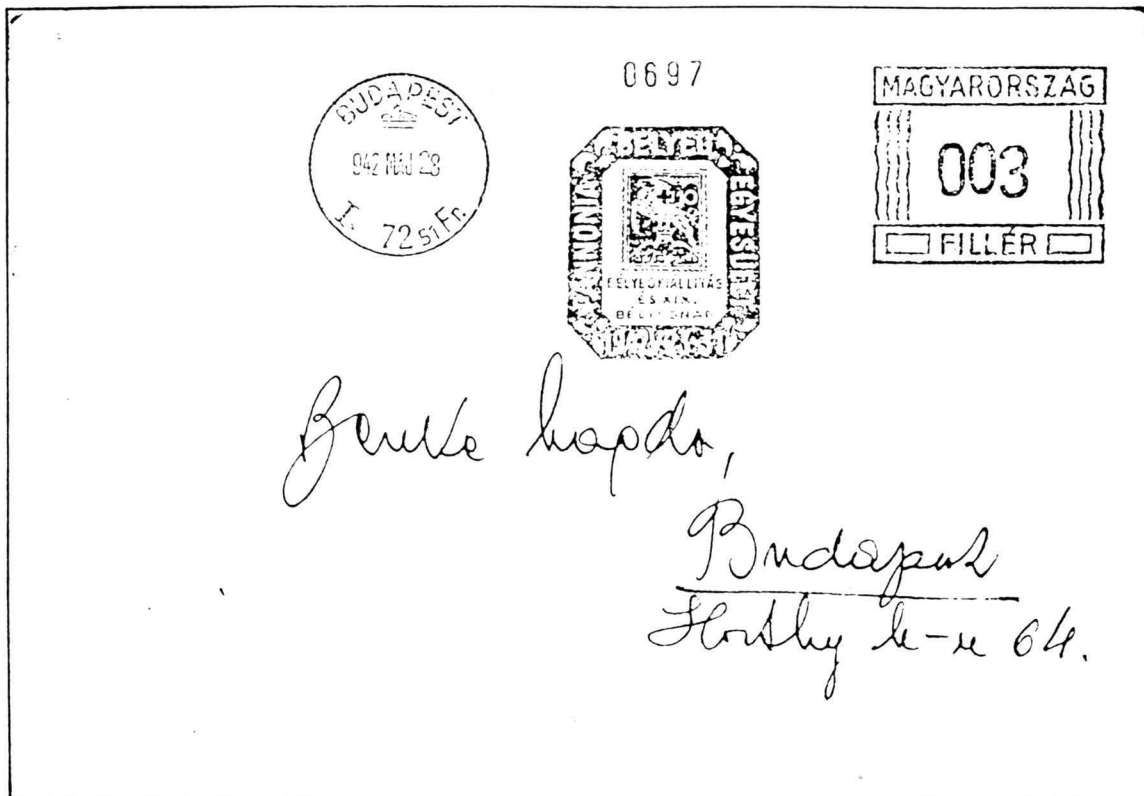 0697
BUDAPEST
942 MÁJ 28
I. 72 51 Fr.
PANNONIA BÉLYEG EGYESÜLET
BÉLYEGKIÁLLÍTÁS
ÉS XIX.
BÉLYEGNAP
MAGYARORSZÁG
003
FILLÉR
Budapest
Horthy M-u 64.